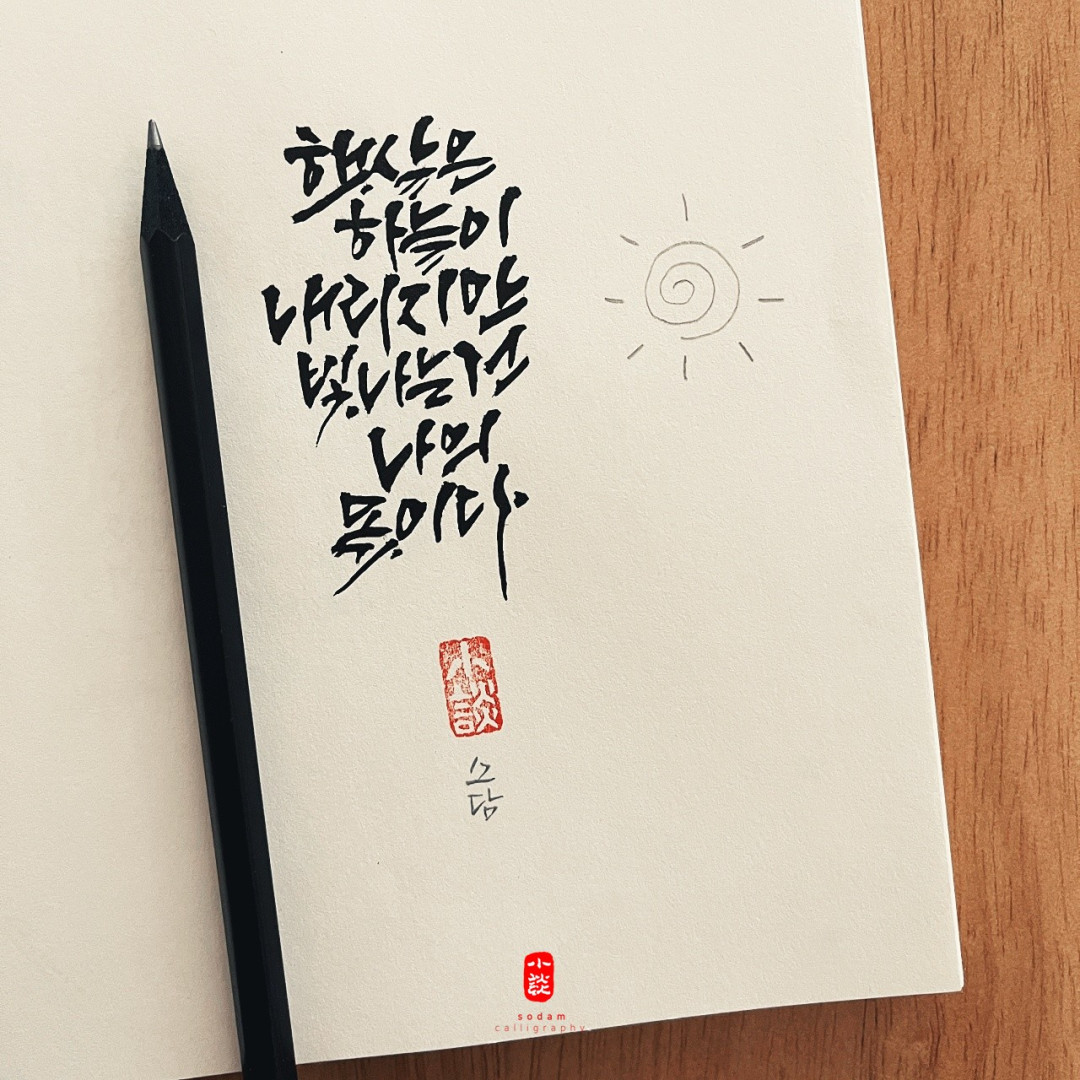 햇살은
하늘이
내리지만
빛나는건
나의
몫이다.
小談
소
담
小談
sodam
calligraphy